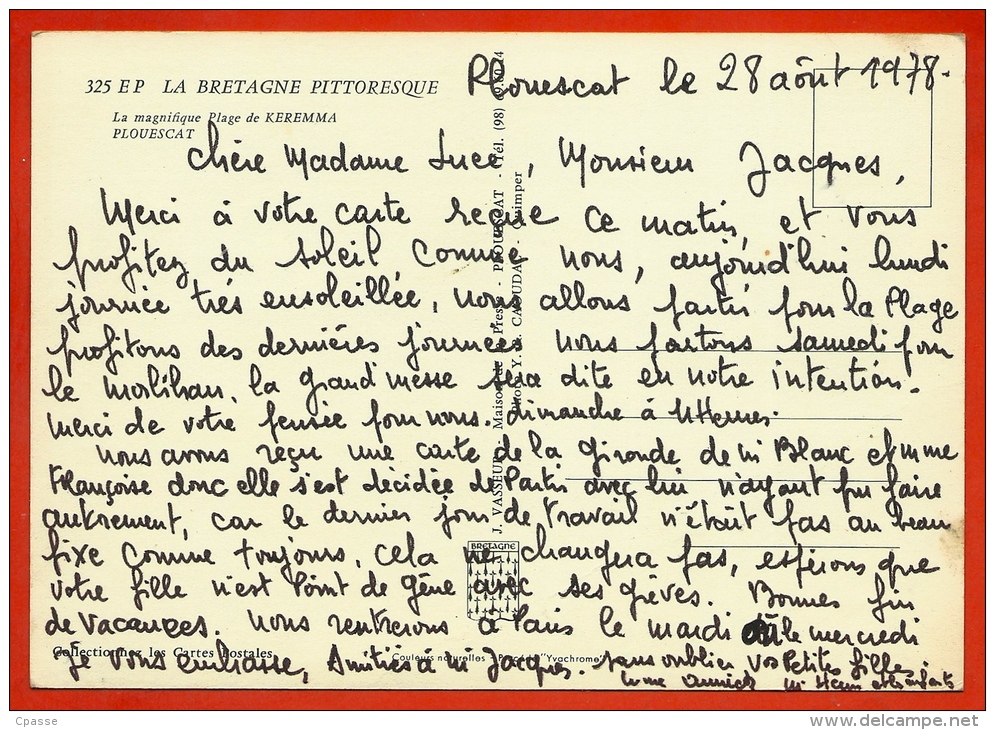 Plouescat le 28 aôut 1978.
325 E P LA BRETAGNE PITTORESQUE
La magnifique Plage de KEREMMA
PLOUESCAT
Chère Madame Luce, Monsieur Jacques,
Merci à votre carte reçue ce matin, et vous
profitez du soleil comme nous, aujourd'hui lundi
journée très ensoleillée, nous allons partir pour la Plage
profitons des dernières journées, nous partons samedi pour
le Morbihan, la grand'messe sera dite en notre intention.
Merci de votre pensée pour nous. dimanche à 11 Heures.
Nous avons reçu une carte de la Gironde de Mr Blanc et Mme
Françoise donc elle s'est décidée de Partir avec lui n'ayant pu faire
autrement, car le dernier jour de travail n'était pas au beau
fixe comme toujours, cela ne changera pas, espérons que
votre fille n'est Point de gêne avec ses grèves. Bonnes fin
de vacances. nous rentrerons à Paris le mardi ou le mercredi
Je vous embrasse, Amitiés à Mr Jacques. sans oublier vos Petites filles.
Mme Annick Mr Henri et les enfants
J. VASSEUR - Maison de la Presse - PLOUESCAT - Tél. (98)
Photo Y. R. CAOUDAL - Quimper
BRETAGNE
Collectionnez les Cartes Postales
Couleurs naturelles - Procédé "Yvachrome"
Cpasse
www.delcampe.net